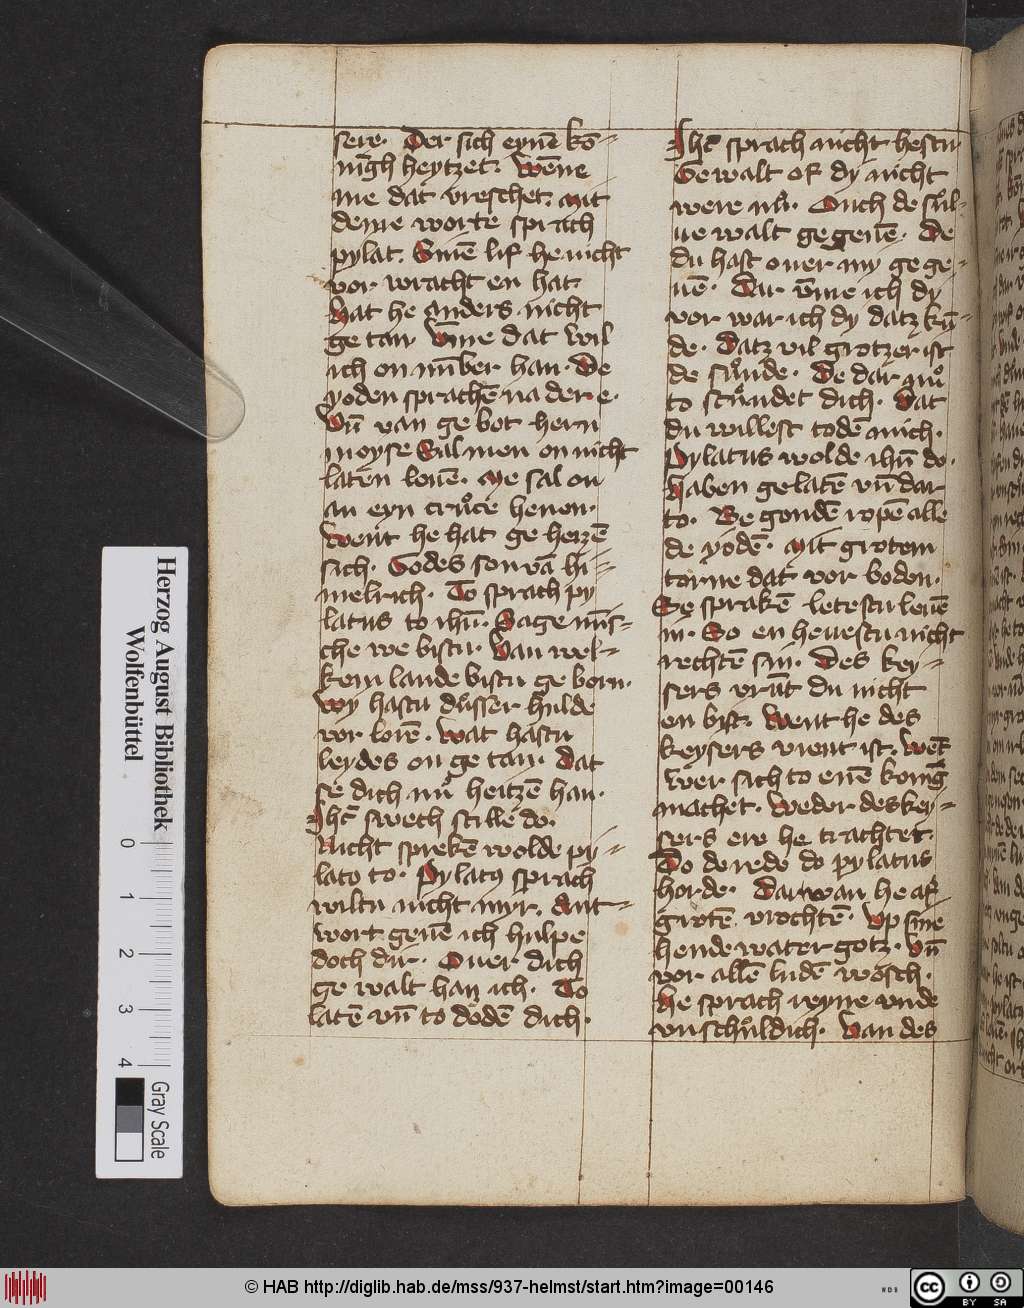 sere. Der sich eynē kō=
nīgh heytzet. Wēne
me dat vreschet. mit
deme worte sprach
pylat. Sinē lif he nicht
vor wracht en hat
Hat he anders nicht
ge tan. Vm̄e dat wil
ich on nūber han. De
yoden sprachē na der e.
Vn̄ van ge bot hern
moyse Sal men on nicht
laten leuē. Me sal on
an eyn crůce henen.
Went he hat ge heizē
sich. Godes son vā hi=
melrich. To sprach py
latus to ihū. Sage mīs=
che we bistu. Van wel=
kem lande bistu ge born.
Wy hastu důsser hulde
vor lorē. Wat hastu
leydes on ge tan. Dat
se dich nů heitzē han.
Ihc̄ swech stille do.
Nicht sprekē wolde py=
lato to. Pylatꝯ sprach
wiltu nicht myr. Ant=
wort geuē ich hulpe
doch dir. Ouer dich
ge walt han ich. To
latē vn̄ to dodē dich.
Ihc̄ sprach nicht hestu
Gewalt of dy nicht
were nů. Ouch de sůl=
ue walt ge geuē. De
du hast ouer my ge ge=
uē. Dar vm̄e ich dy
vor war ich dy datz kū=
de. Datz vil grotzer ist
de sůnde. De dar mů
to stůndet dich. Dat
du willest todē mich.
Pylatus wolde ihū do.
Haben ge latē vn̄ dar
to. Be gondē ropē alle
de yodē. Mit grotem
torne dat vor boden.
Se sprakē letestu leuē
in. So en heuestu nicht
rechtē sin. Des key=
sers vrūt du nicht
en bist. Went he des
keysers vient ist. Wēt
wer sich to enē koning
machet. Weder des key=
sers ere he trachtet.
Do de rede do pylatus
horde. Dar van he af
grotē. vrochtē. Vp sine
hende water gotz. Vn̄
vor allē ludē wosch.
He sprach in myne vnde
vnschůldich. Van des
Herzog August Bibliothek
Wolfenbüttel
0 1 2 3 4
Gray Scale
© HAB http://diglib.hab.de/mss/937-helmst/start.htm?image=00146
WDB
cc BY SA